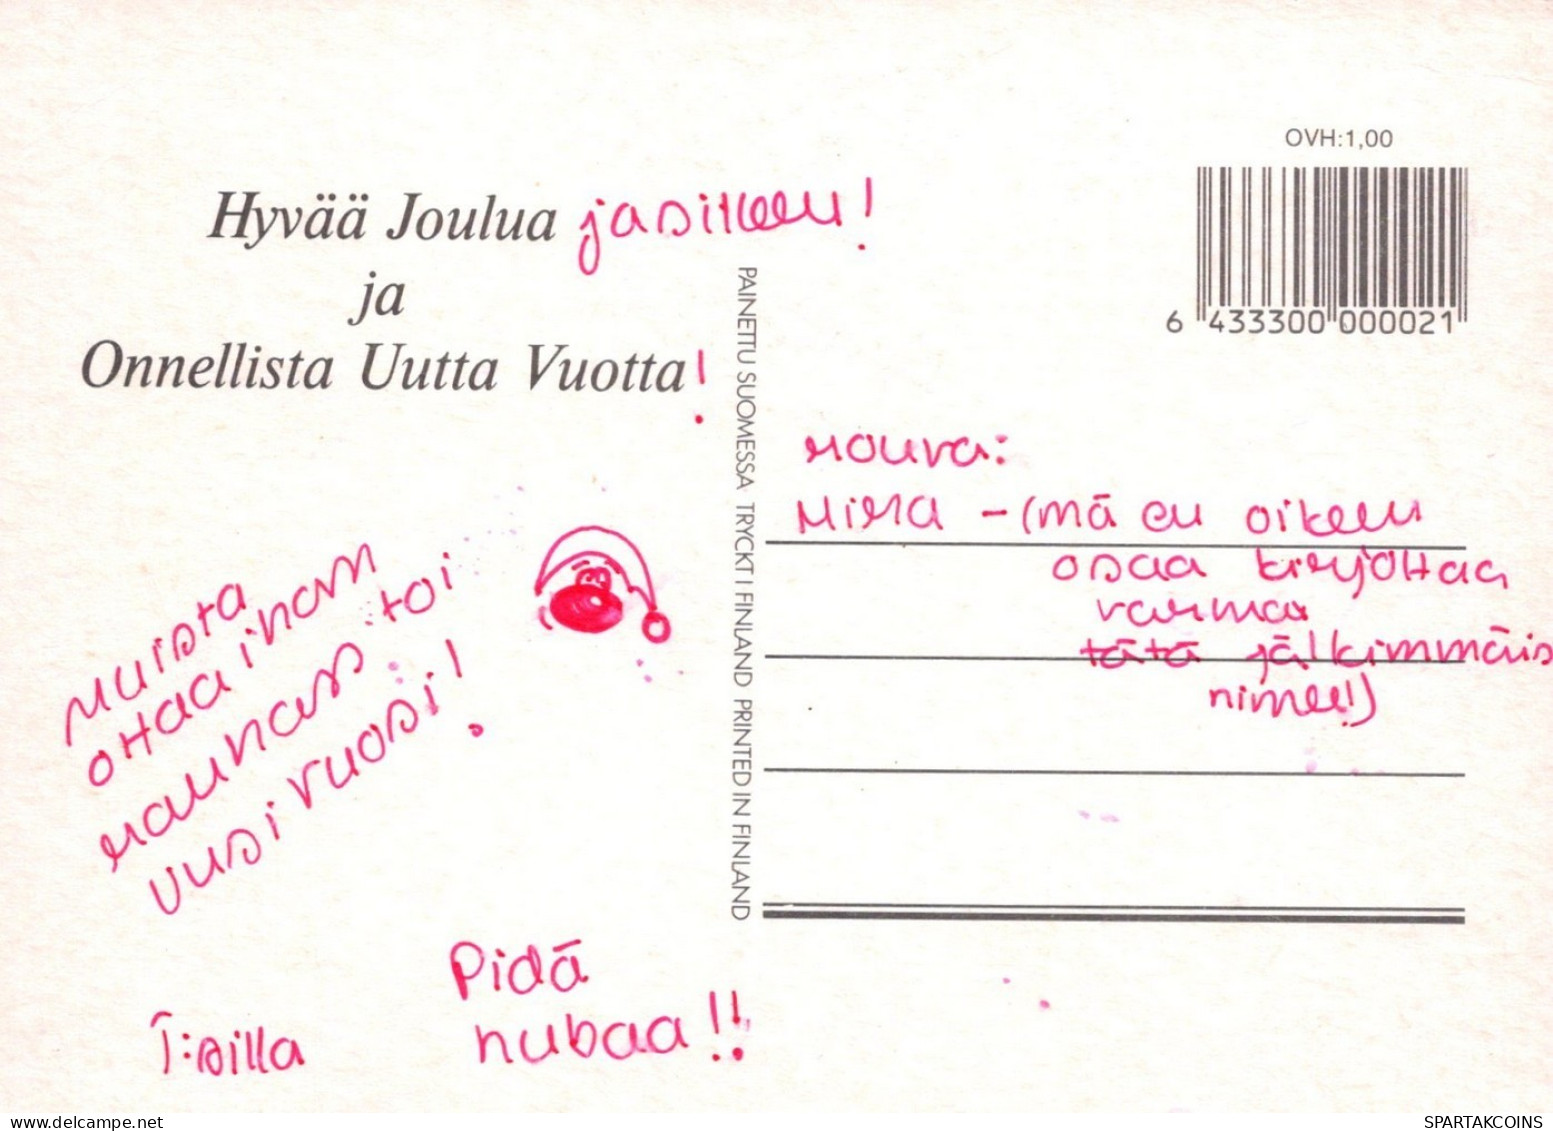 OVH:1,00
6 433300 000021
Hyvää Joulua jasitkeeu!
ja
Onnellista Uutta Vuotta!
PAINETTU SUOMESSA TRYCKT I FINLAND PRINTED IN FINLAND
rouva:
Mira - (mä en oikeen
osaa kirjottaa
varmaa
tätä jälkimmäis
nimee!)
Muista
ottaa ihan
rauhas toi
uusi vuosi!
T:silla
Pidä
hubaa!!
SPARTAKCOINS